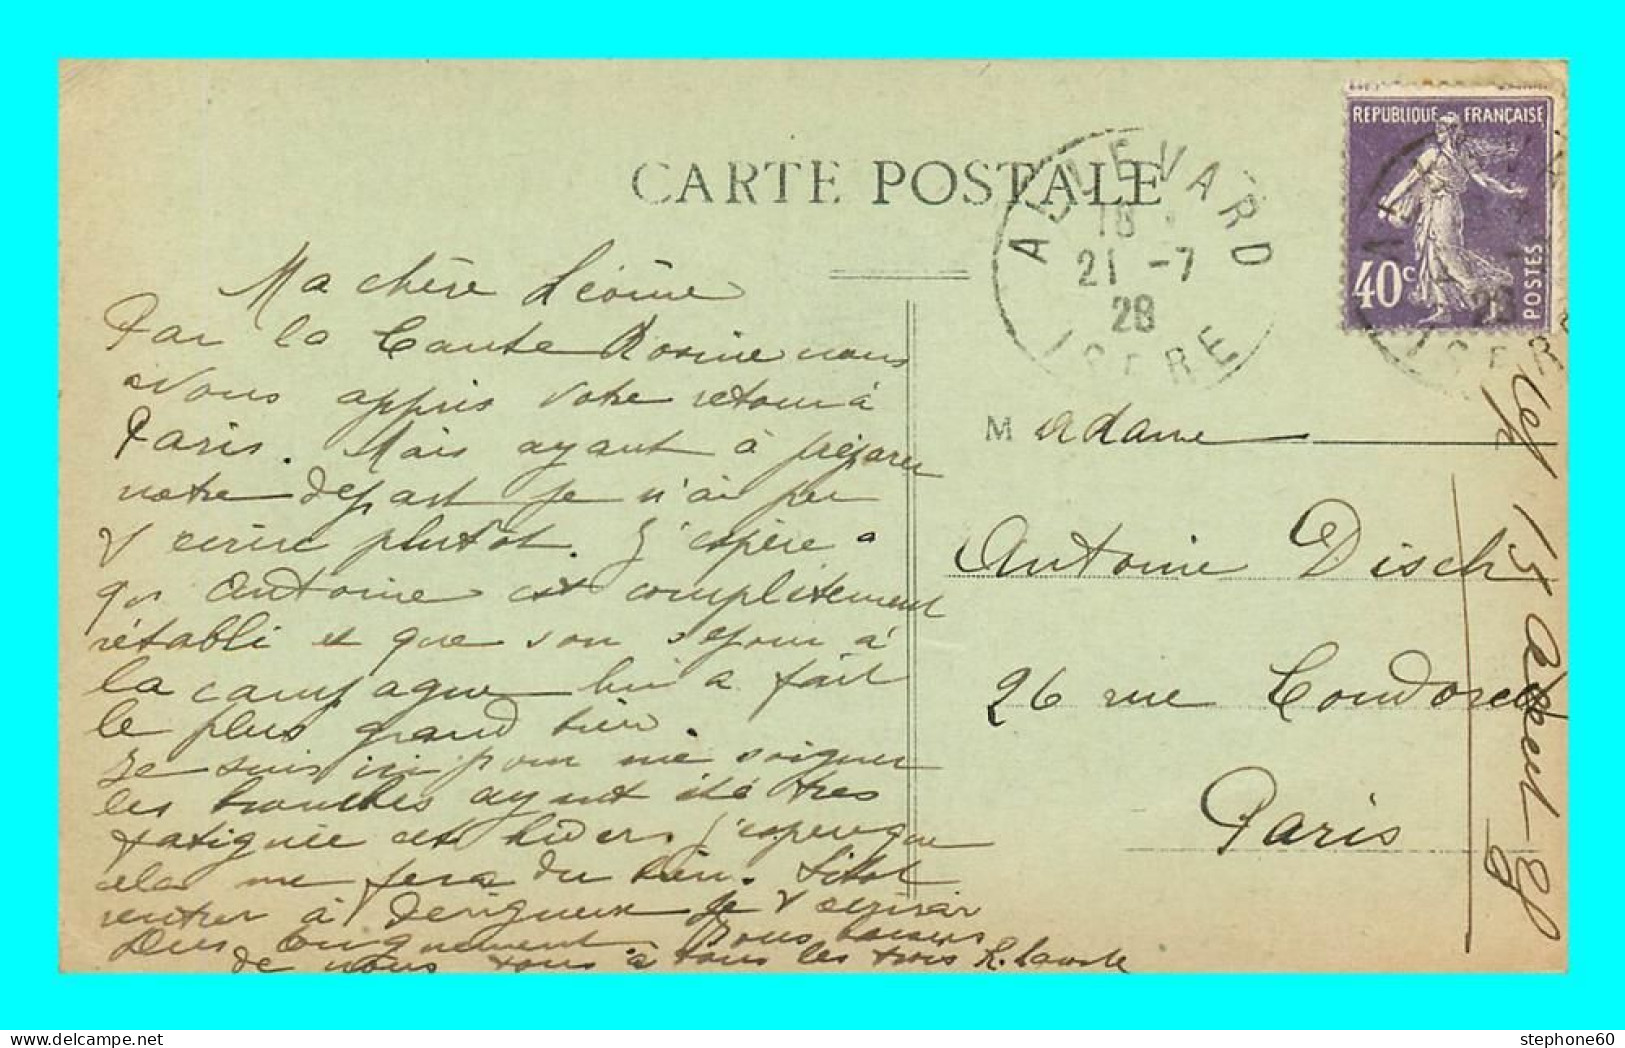 CARTE POSTALE
ALLEVARD
18
21 -7
28
ISERE
REPUBLIQUE FRANÇAISE
40c
POSTES
28
ISER
Ma chère Léonie
Par la Tante Rosine nous
avons appris votre retour à
Paris. Mais ayant à préparer
notre départ je n'ai pu
v écrire plutot. J'espère
qu Antoine est complètement
rétabli et que son séjour à
la campagne lui a fait
le plus grand bien.
Je suis ici pour me soigner
les bronches ayant été très
fatiguée cet hiver. j'espere que
cela me fera du bien. Sitot
rentrer à Périgueux je v écrirai
plus longuement. Bons baisers
de nous tous à tous les trois
Madame
Antoine Disch
26 rue Condorcet
Paris
15
stephone60